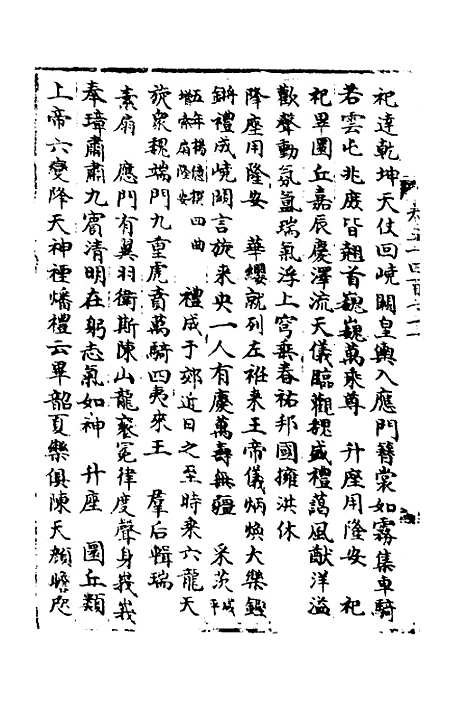 祀達乾坤天仗回嶢闕皇輿入應門簪裳如霧集車騎
若雲屯兆庶皆翹首巍巍萬乘尊　升座用隆安　祀
祀畢圜丘嘉辰慶澤流天儀臨觀魏盛禮藹風猷洋溢
歡聲動氛氳瑞氣浮上穹垂春祐邦國擁洪休
降座用隆安　華纓就列左袵來王帝儀炳煥大樂鏗
鏘禮成嶢闕言旋未央一人有慶萬壽無疆　采茨
五年楊億撰四曲　禮成于郊近日之至時乘六龍天
旋衆魏端門九重虎賁萬騎四夷來王　羣后輯瑞
素扇　應門有翼羽衛斯陳山龍袞冕律度聲身峩峩
奉璋肅肅九賓清明在躬志氣如神　升座　圜丘類
上帝六變降天神禋燔禮云畢韶夏樂俱陳天顏瞻咫